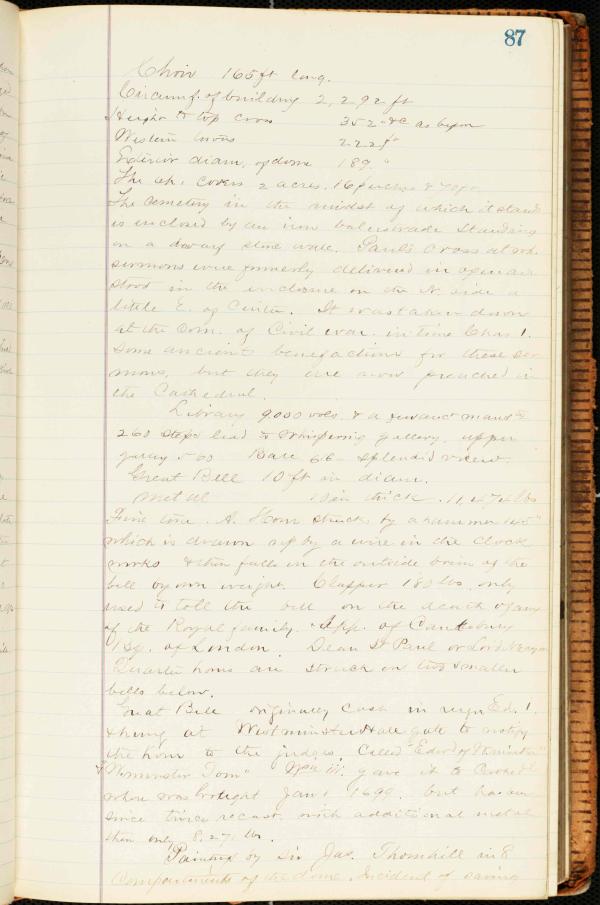 87
Choir 165 ft long.
Circumf. of building 2,292 ft
Height to top cross 352 &c as before
Western towers 222 ft
Exterior diam. of dome 189 "
The ch. covers 2 acres, 16 perches & 70 ft.
The cemetery in the midst of which it stands
is inclosed by an iron balustrade standing
on a dwarf stone wall. Paul's Cross at wh.
sermons were formerly delivered in open air
stood in the inclosure on the N. side a
little E. of Center. It was taken down
at the Com. of Civil war in time Chas 1.
Some ancient benefactions for these ser
mons, but they are now preached in
the Cathedral.
Library 9000 vols. & a few anct manscts
260 steps lead to whispering gallery, upper
gallery 560 Ball 616 - splendid view.
Great Bell 10 ft in diam.
metal 10 in thick. 11,474 lbs
Fine tone. A. Hour struck by a hammer 145 "
which is drawn up by a wire in the clock
works & then falls on the outside brim of the
bell by own weight. Clapper 180 lbs. only
used to toll the bell on the death of any
of the Royal family. App. of Canterbury
Bp. of London. Dean St Paul or Lord Mayor
Quarter hours are struck on two smaller
bells below.
Great Bell originally cast in reign Ed. 1.
& hung at Westminster Hall gate to notify
the hour to the judges. Called "Edwd of Wminster"
& "Wminster Tom" Wm III. gave it to Cathedl
where was brought Jan 1 1699. but has been
since twice recast with additional metal
then only lbs.
Painting by Sir Jas. Thornhill in 8
Compartments of the dome. Incident of saving